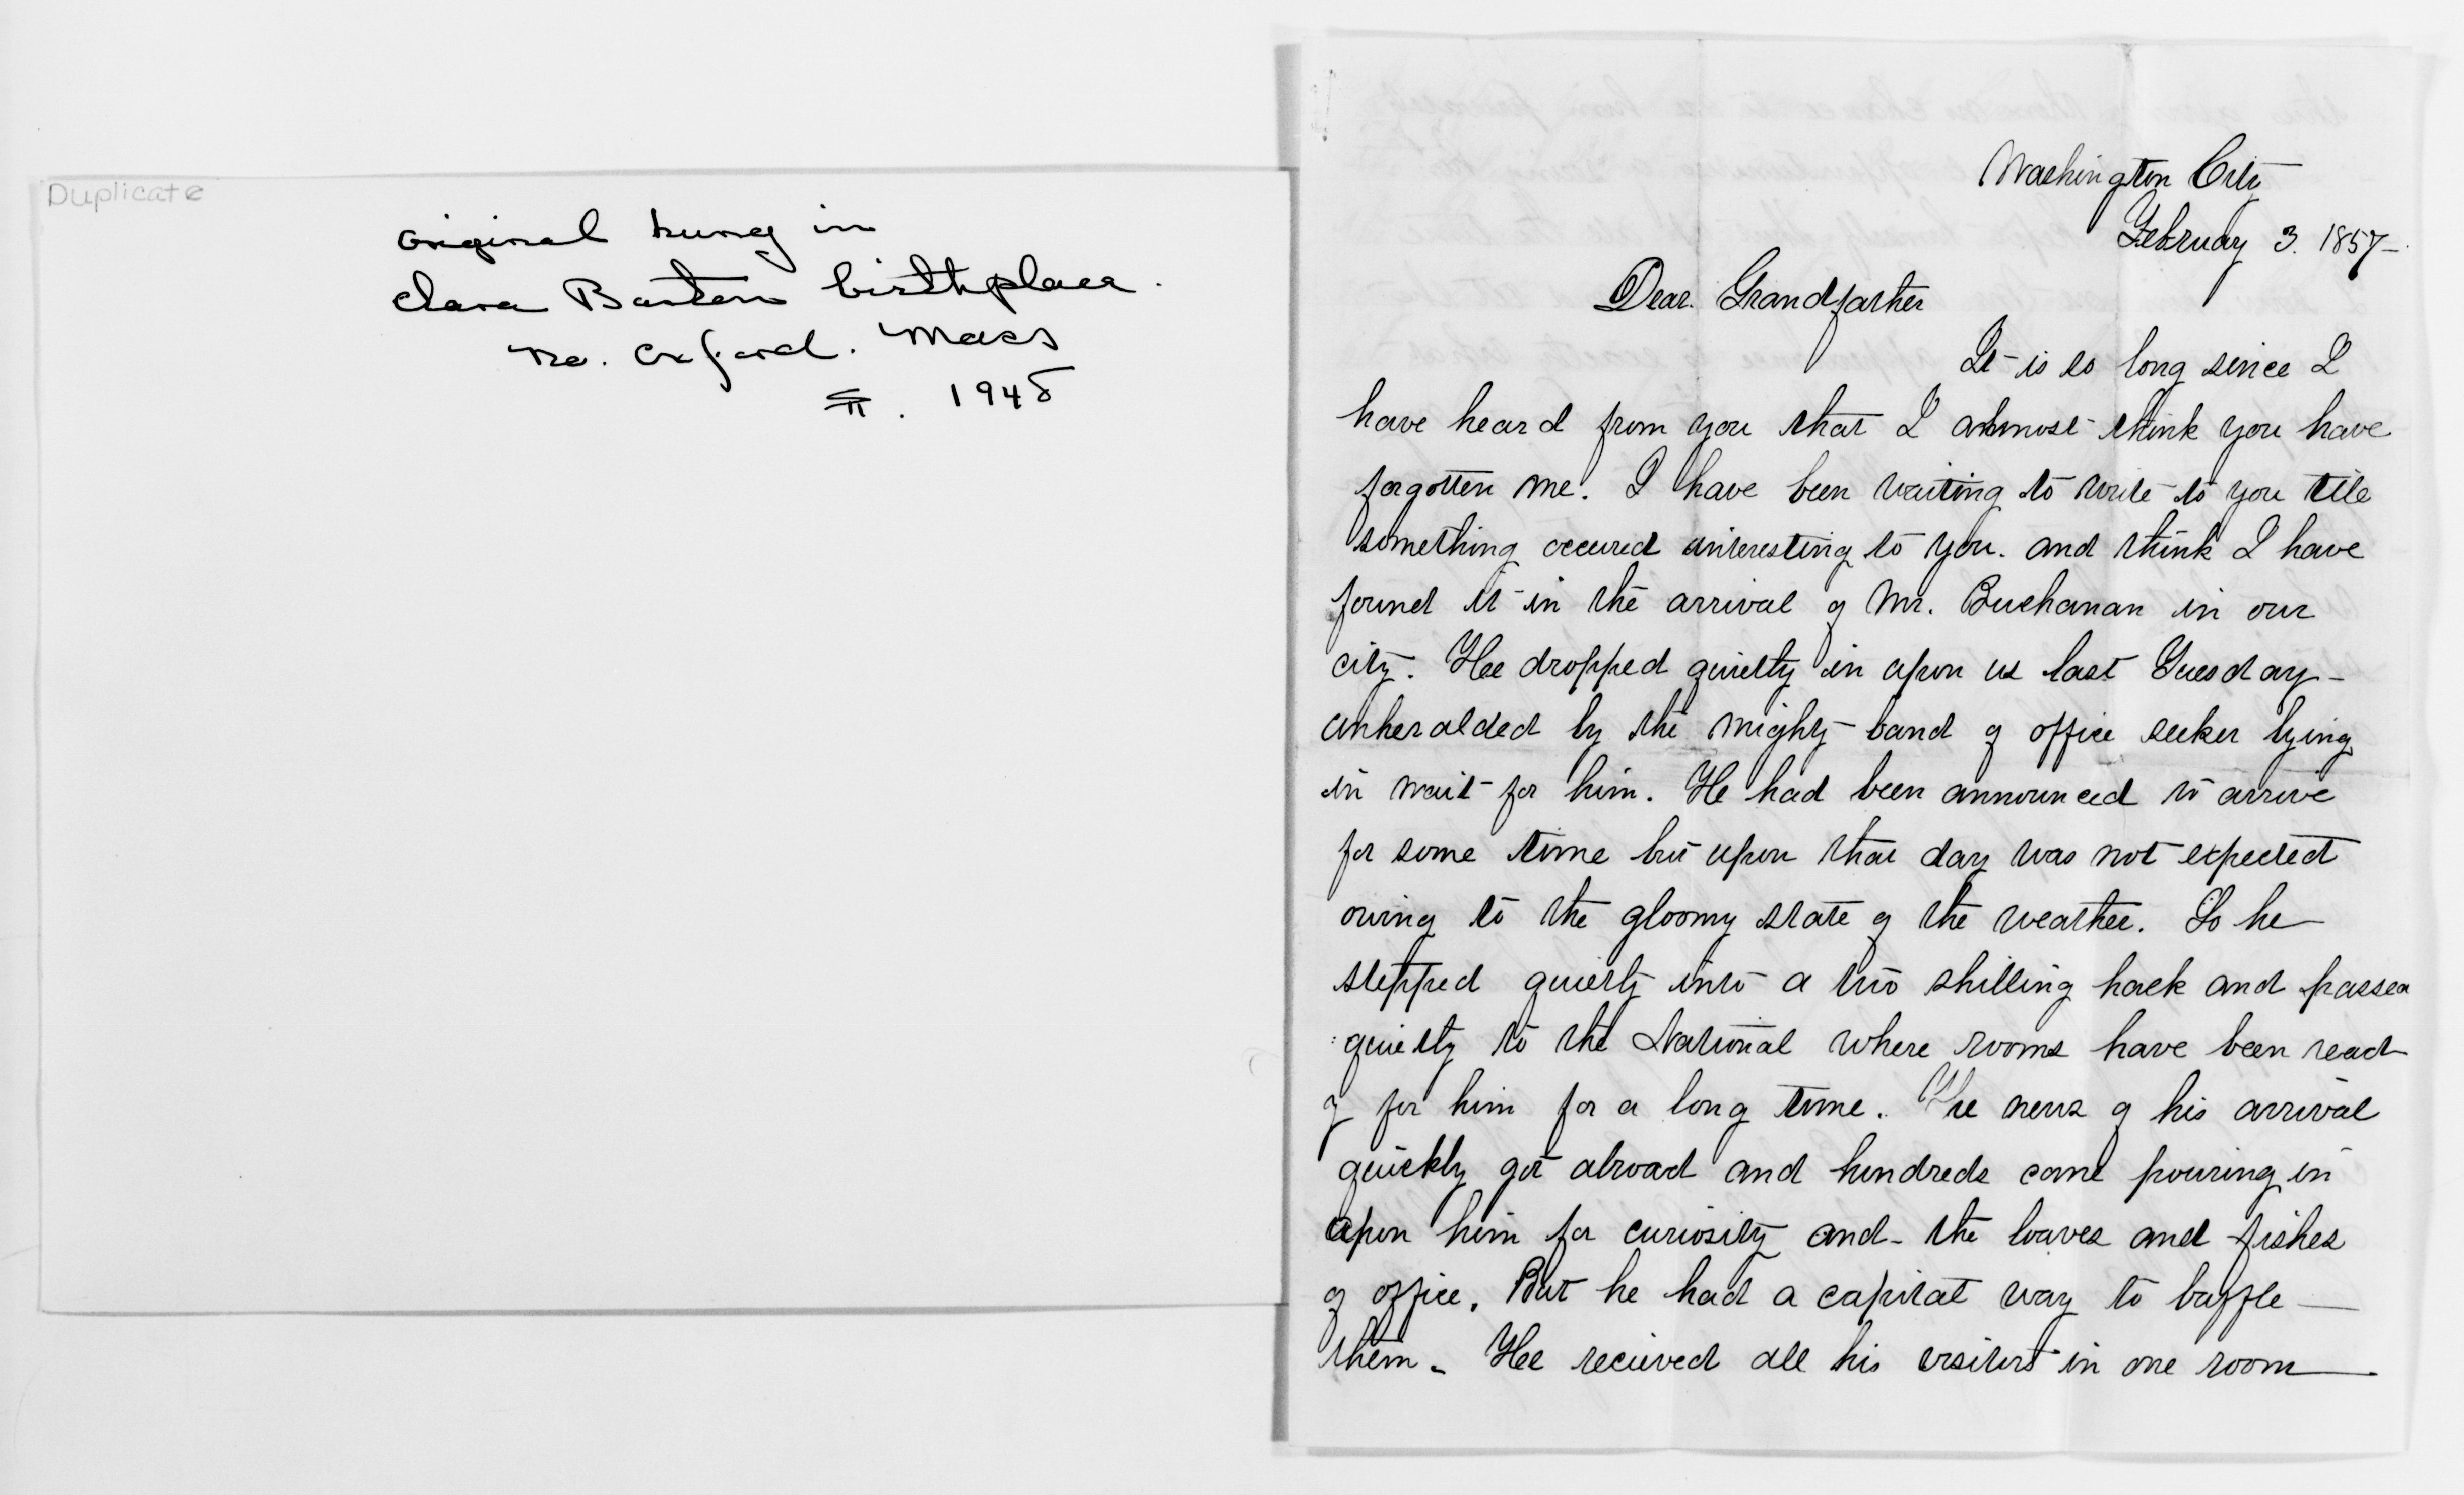 Duplicate
Original hung in
Clara Barton birthplace.
No. Oxford. Mass
1948
Washington City
February 3. 1857-
Dear. Grandfather
It is so long since I
have heard from you that I almost think you have
forgotten me. I have been waiting to write to you till
something occured interesting to you. and think I have
found it in the arrival of Mr. Buchanan in our
city. Hee dropped quietly in upon us last Tuesday-
unheralded by the mighty band of office seeker lying
in wait for him. He had been announced to arrive
for some time but upon that day was not expected
owing to the gloomy state of the weather. So he
stepped quietly into a two shilling hack and passed
quietly to the National where rooms have been read
y for him for a long time. The news of his arrival
quickly got abroad and hundreds came pouring in
upon him for curiosity and the loaves and fishes
of office. But he had a capital way to baffle
them. Hee recieved all his visitors in one room